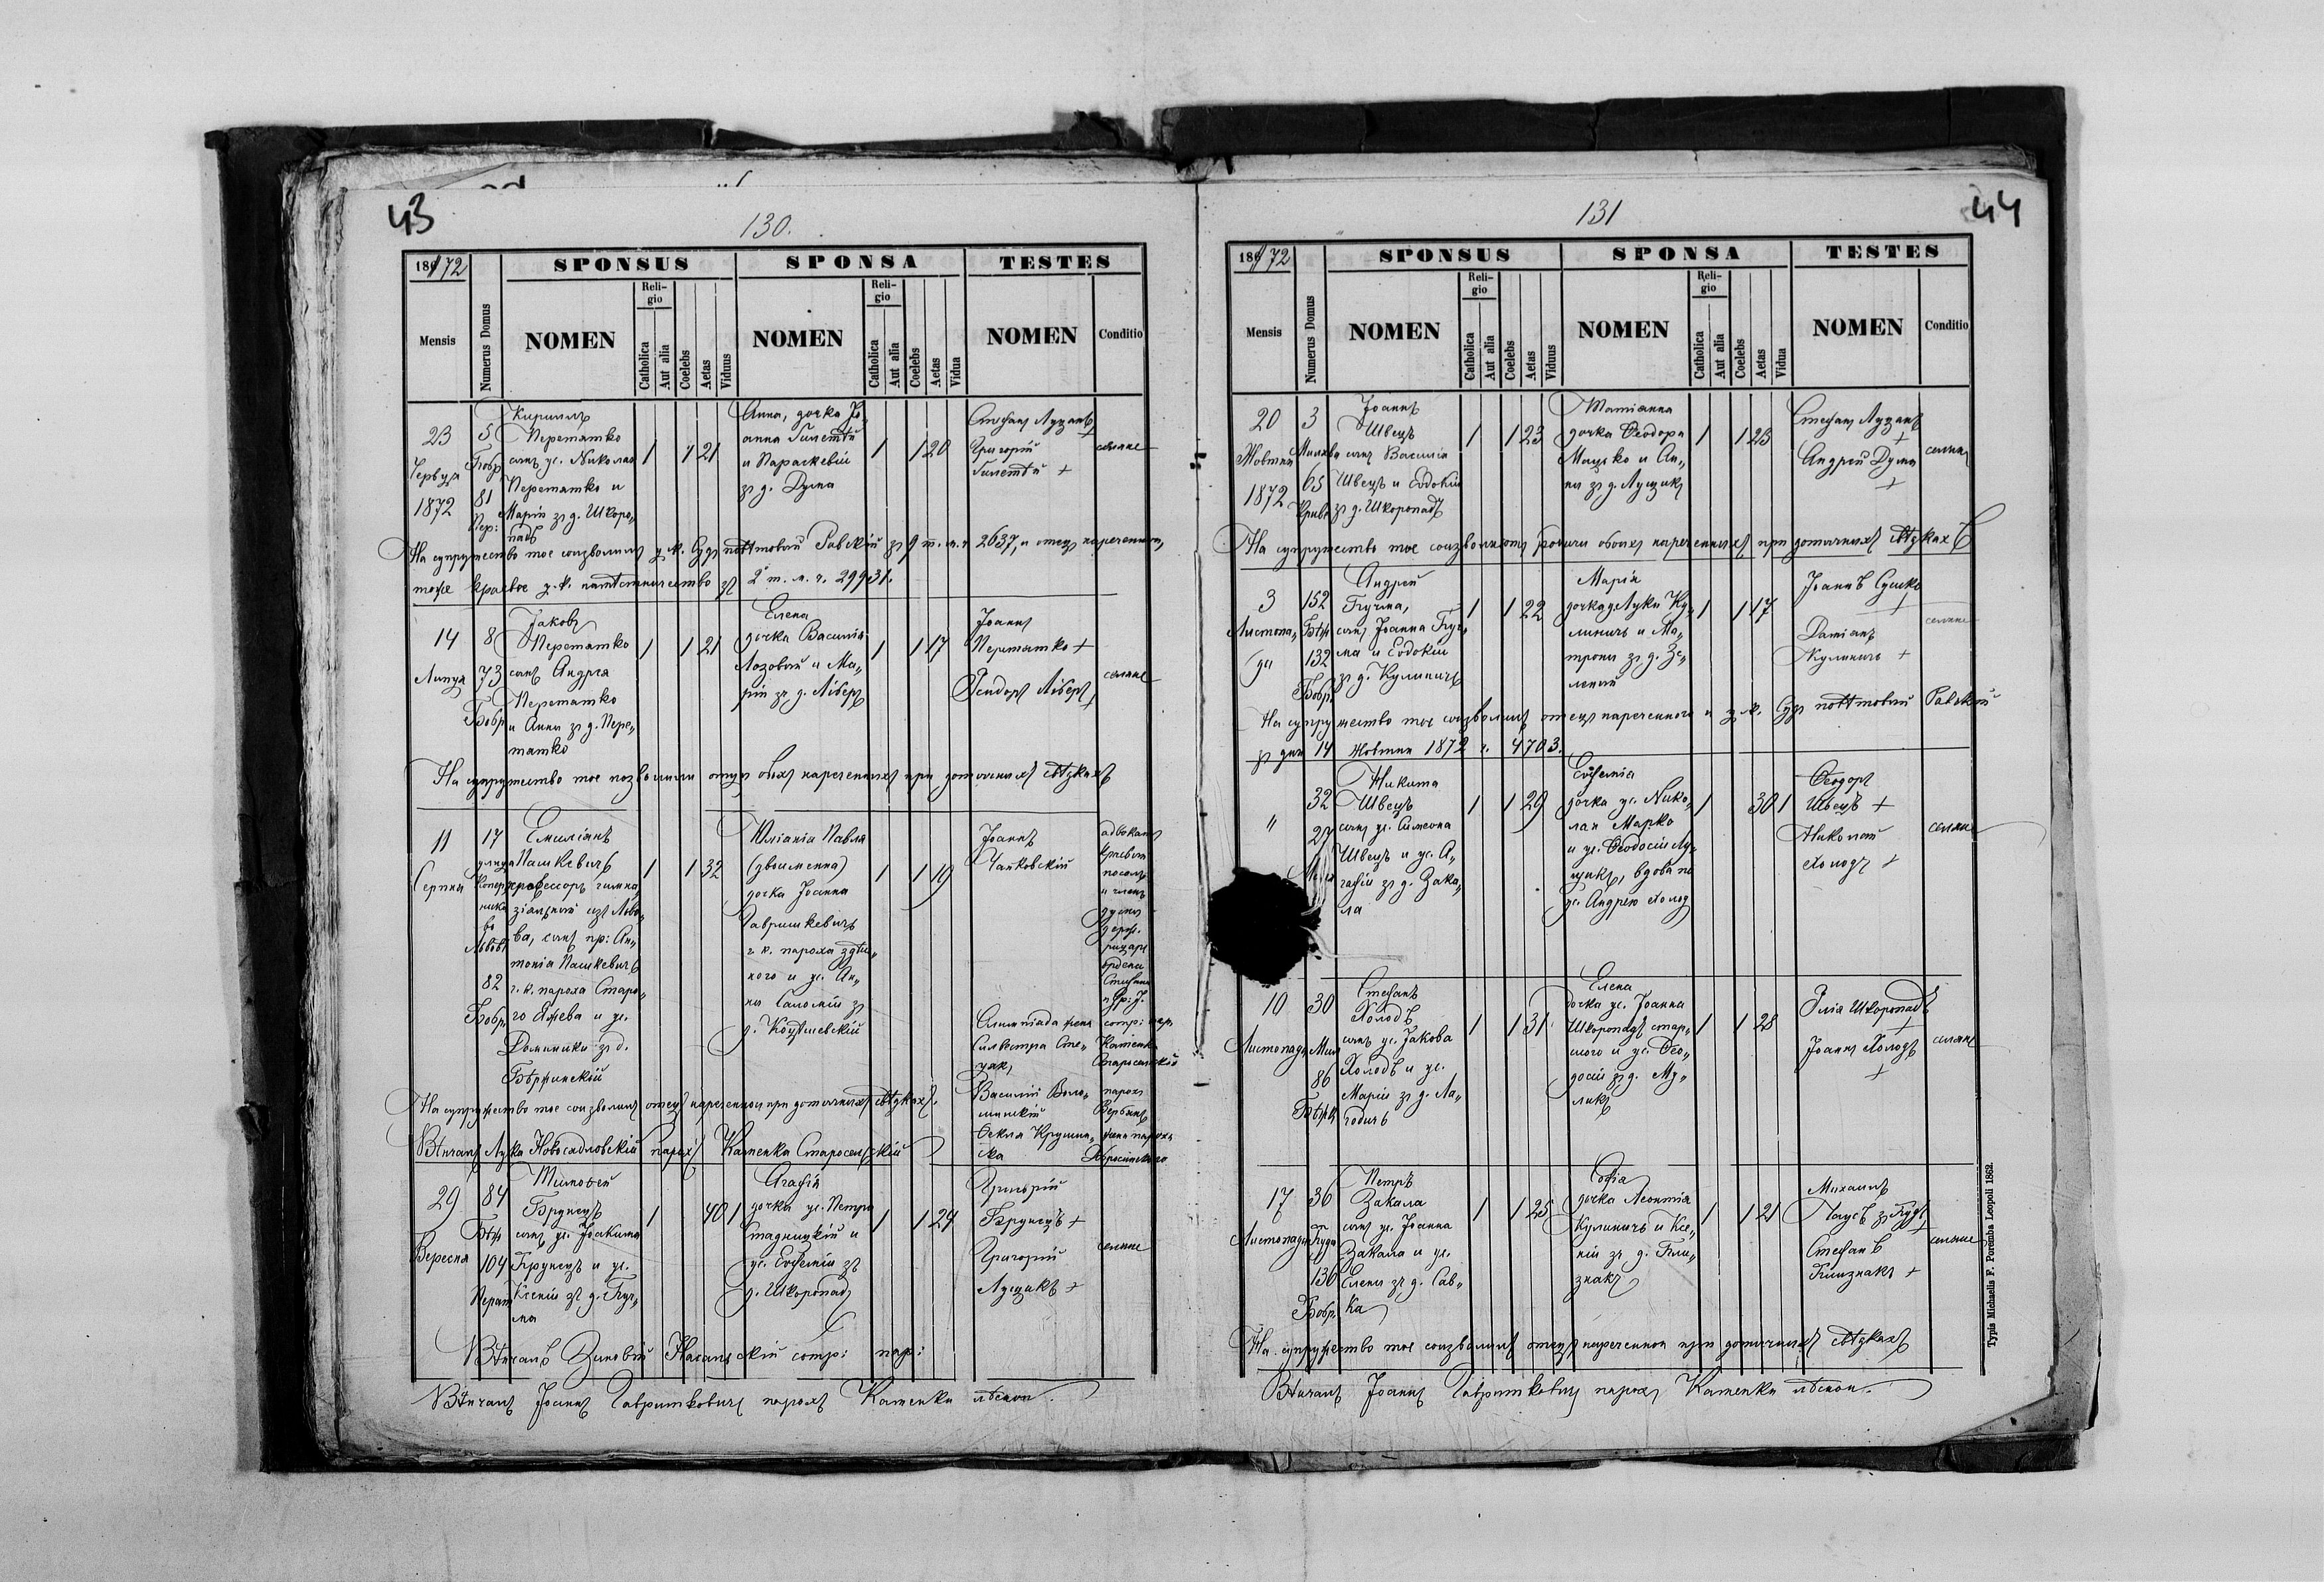 43
130.
1872
SPONSUS
SPONSA
TESTES
Mensis
Numerus Domus
NOMEN
Religio
Catholica
Aut alia
Coelebs
Aetas
Viduus
NOMEN
Religio
Catholica
Aut alia
Coelebs
Aetas
Vidua
NOMEN
Conditio
23
Червця
1872
5
Бобр
81
Пер:
Кирилъ
Перетятко
сынъ ус. Николая
Перетятко и
Маріи зъ д. Шкоро„
падъ
1
1 21
Анна, дочка Іо
анна
и Параскевіи
зъ д. Дума
1
1 20
Стефанъ Лущакъ
Григорій
+
селяне
На супружество тое соизволилъ ц. к. Судъ повѣтовый Равскій зъ 9 т. м. ч. 2637, и отецъ нареченной,
тоже краевое ц. к. намѣстничество зъ 2 т. м. ч. 29931.
14
Липця
8
73
Бобр
Іаковъ
Перетятко
сынъ Андрея
Перетятко
и Анны зъ д. Пере„
тятко
1
1 21
Елена
дочка Василія
Лозовый и Ма„
ріи зъ д. Либеръ
1
1 17
Іоаннъ
Перетятко +
Исидоръ Либеръ
+
селяне
На супружество тое позволили отцы обоихъ нареченныхъ при дотычныхъ свѣдкахъ
11
Серпня
17
улиця
Копер
ника
во
Львовѣ
82
Бобр
Емиліянъ
Пашкевичъ
профессоръ гимна
зіальный изъ Льво„
ва, сынъ пр: Ан„
тонія Пашкевичъ
г. к. пароха Старо„
го Яжева и ус.
Доминики зъ д.
1
1 32
Юліанія Павла
(двоименна)
дочка Іоанна
Гавришкевичъ
г. к. пароха здѣш„
ного и ус. Ан„
ны Саломіи зъ
д. Козѣлевскій
1
1 19
Іоаннъ
Чайковскій
адвокатъ
краевый
посолъ
и членъ
думы
держ.
рицаръ
ордена
Олимпіада жена
Сильвестра Сте„
цак,
сотр: пар.
Каменки
Старосельскои
Василій Воло„
парохъ
жена пароха
На супружество тое соизволилъ отецъ нареченнои при дотычныхъ свѣдкахъ.
Вѣнчалъ Лука Новосадловскій парохъ Каменка Старосельскій
29
Вересня
84
Бѣл
104
Перат
Тимотей
Брунецъ
сынъ ус. Іоакима
Брунецъ и ус.
Ксеніи зъ д. Буч„
ма
1
40 1
Агафія
дочка ус. Петра
и
ус. Евфеміи зъ
д. Шкоропадъ
1
1 24
Григорій
Брунецъ +
Григорій
Лущакъ +
селяне
Вѣнчалъ Зиновій сотр: пар:
Вѣнчалъ Іоаннъ Гавришкевичъ парохъ Каменки лѣснои.
44
131
1872
SPONSUS
SPONSA
TESTES
Mensis
Numerus Domus
NOMEN
Religio
Catholica
Aut alia
Coelebs
Aetas
Viduus
NOMEN
Religio
Catholica
Aut alia
Coelebs
Aetas
Vidua
NOMEN
Conditio
20
Жовтня
1872
3
65
Іоаннъ
Швецъ
сынъ Василія
Швецъ и Евдокіи
зъ д. Шкоропадъ
1
1 23
Татіанна
дочка Ѳеодора
Мацько и Ан„
ны зъ д. Лущикъ
1
1 23
Стефанъ Лущакъ
+
Андрей Дума
+
селяне
На супружество тое соизволяютъ родичи обоихъ нареченныхъ при дотычныхъ свѣдкахъ
3
Листопа„
да
152
Бѣл
132
Бобр.
Андрей
Бучма,
сынъ Іоанна Буч„
ма и Евдокіи
зъ д. Кулиничъ
1
1 22
Марія
дочка Луки Ку„
линичъ и Ма„
троны зъ д. Зе„
леный
1
1 17
Іоаннъ Сушко
+
Даміанъ
Кулиничъ +
селяне
На супружество тое соизволилъ отецъ нареченного и ц. к. Судъ повѣтовый Равскій
зъ дня 14 Жовтня 1872 ч. 4703.
"
32
27
Никита
Швецъ
сынъ ус. Симеона
Швецъ и ус. А„
гафіи зъ д. Зака„
ла
1
1 29
Евфемія
дочка ус. Нико„
лая Марко
и ус. Ѳеодосіи Лу„
щикъ, вдова по
ус. Андрею Холод
1
30 1
Ѳеодоръ
Швецъ +
Николай
Холодъ +
селяне
10
Листопада
30
86
Стефанъ
Холодъ
сынъ ус. Іакова
Холодъ и ус.
Маріи зъ д. Ла„
годичъ
1
1 31
Елена
дочка ус. Іоанна
Шкоропадъ стар„
шого и ус. Ѳео„
досіи зъ д. Му„
ликъ
1
1 28
Илія Шкоропадъ
+
Іоаннъ Холодъ
+
селяне
17
Листопада
36
Руда
130
Бобр.
Петръ
Закала
сынъ ус. Іоанна
Закала и ус.
Елены зъ д. Сав„
ка
1
1 25
Софія
дочка Леонтія
Кулиничъ и Ксе„
ніи зъ д. Близ„
накъ
1
1 21
Михаилъ
Паусъ зъ Рудъ
+
Стефанъ
Близнакъ +
селяне
На супружество тое соизволилъ отецъ нареченнои при дотычныхъ свѣдкахъ
Вѣнчалъ Іоаннъ Гавришкевичъ парохъ Каменки лѣснои.
Typis Michaelis F. Poremba Leopoli 1862.